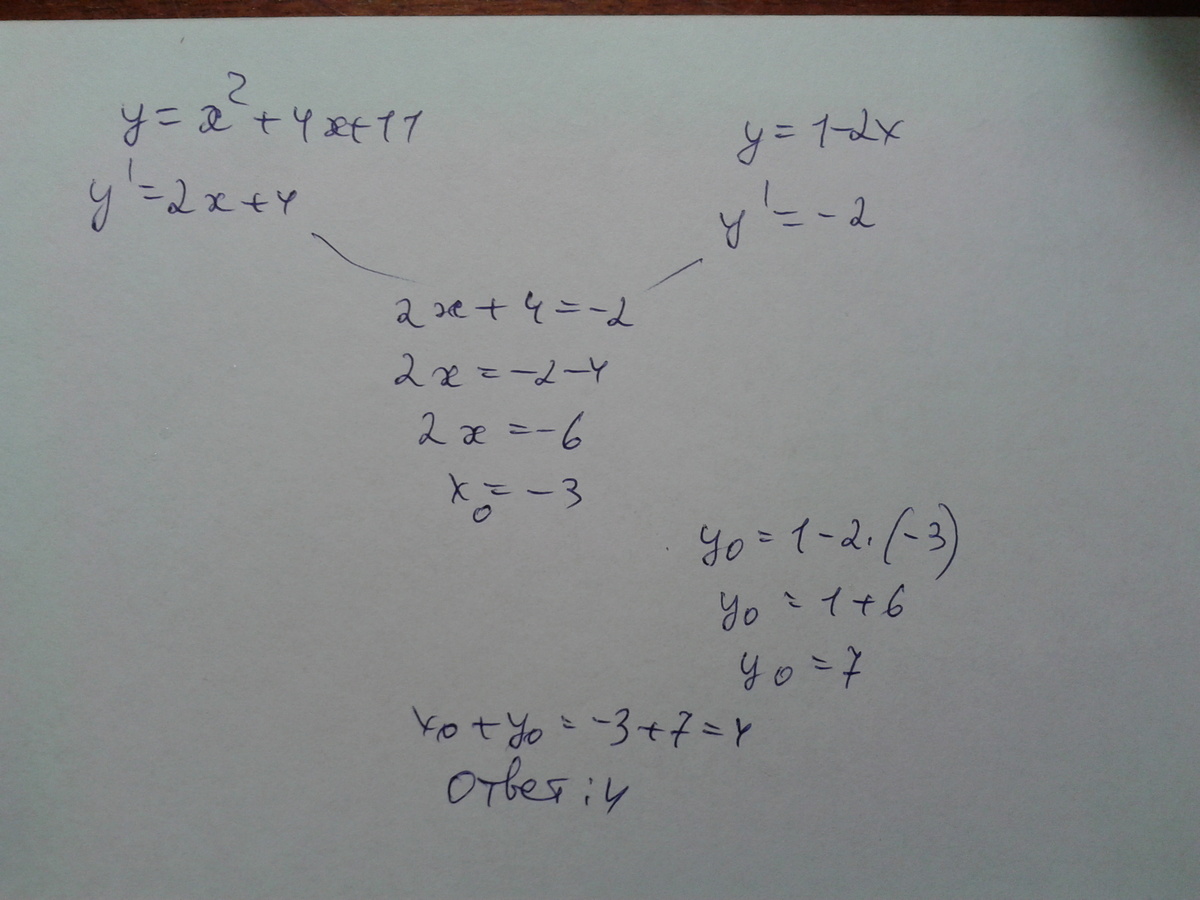 y = x² + 4x + 11
y' = 2x + 4
y = 1 - 2x
y' = -2
2x + 4 = -2
2x = -2 - 4
2x = -6
x₀ = -3
y₀ = 1 - 2 · (-3)
y₀ = 1 + 6
y₀ = 7
x₀ + y₀ = -3 + 7 = 4
Ответ: 4